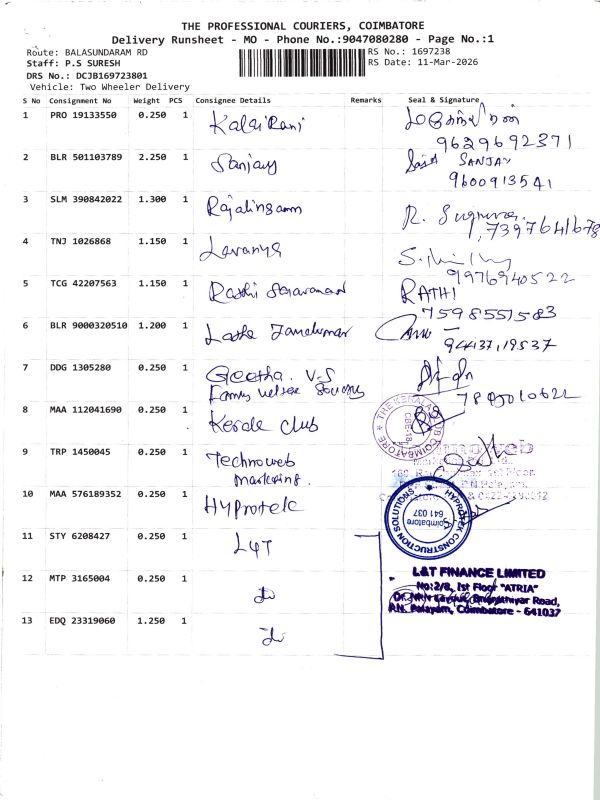 THE PROFESSIONAL COURIERS, COIMBATORE
Delivery Runsheet - MO - Phone No.:9047080280 - Page No.:1
Route: BALASUNDARAM RD
RS No.: 1697238
Staff: P.S SURESH
RS Date: 11-Mar-2026
DRS No.: DCJB169723801
Vehicle: Two Wheeler Delivery
S No Consignment No Weight PCS Consignee Details Remarks Seal & Signature
1 PRO 19133550 0.250 1 Kalai Rani
9629692371
2 BLR 501103789 2.250 1 Sanjay SANJAY
9600913541
3 SLM 390842022 1.300 1 Rajalingam R.
7397641678
4 TNJ 1026868 1.150 1 Lavanya
9976940522
5 TCG 42207563 1.150 1 Rathi Saravanan RATHI
7598551583
6 BLR 9000320510 1.200 1 Latha
94437,19537
7 DDG 1305280 0.250 1 Geetha. V.S
Family
8 MAA 112041690 0.250 1 Kerala Club
THE KERALA CLUB COIMBATORE
CBE-18
9 TRP 1450045 0.250 1 Technoweb
marketing.
10 MAA 576189352 0.250 1 Hyprotek
HYPROTEK CONSTRUCTION SOLUTIONS
Coimbatore
641 037
11 STY 6208427 0.250 1 L&T
L&T FINANCE LIMITED
12 MTP 3165004 0.250 1
No:2/8, Ist Floor "ATRIA"
Road,
P.N. Palayam, Coimbatore - 641037
13 EDQ 23319060 1.250 1